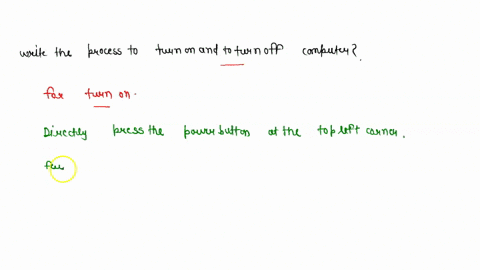 write the process to turn on and to turn off computer?
for turn on.
Directly press the power button at the top left corner.